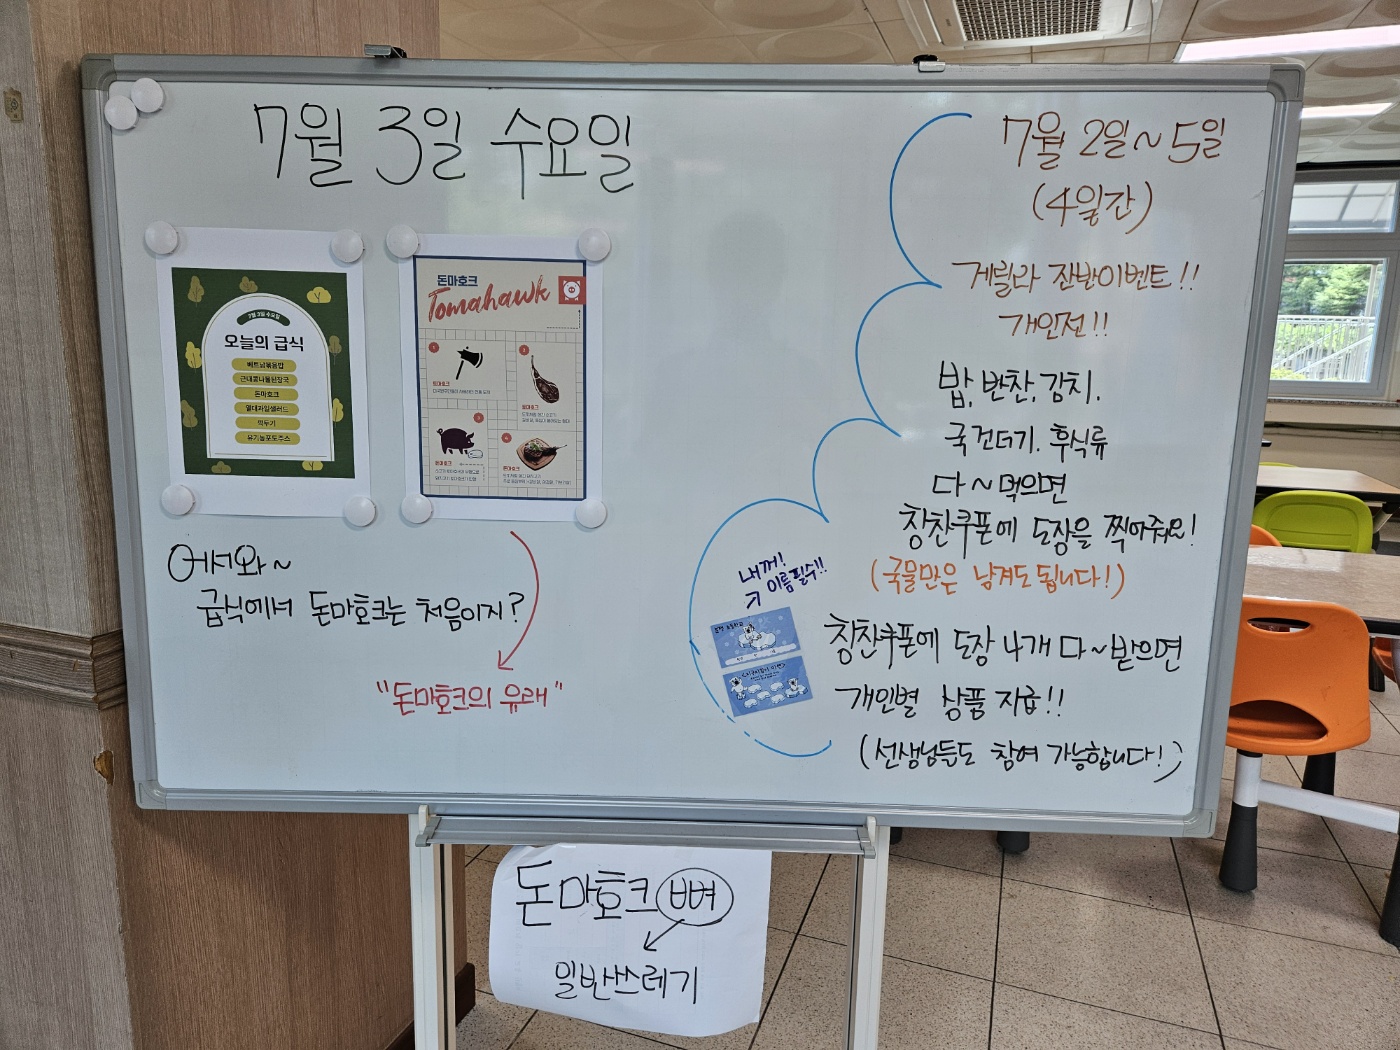 7월 3일 수요일
7월 3일 수요일
오늘의 급식
베트남볶음밥
근대콩나물된장국
돈마호크
열대과일샐러드
깍두기
유기농포도주스
돈마호크
Tomahawk
어서와~
급식에서 돈마호크는 처음이지?
"돈마호크의 유래"
7월 2일~5일
(4일간)
게릴라 잔반이벤트!!
개인전!!
밥, 반찬, 김치.
국건더기. 후식류
다~먹으면
칭찬쿠폰에 도장을 찍어줘요!
(국물만은 남겨도 됩니다!)
내꺼!
이름필수!!
칭찬쿠폰에 도장 4개 다~받으면
개인별 상품 지급!!
(선생님들도 참여 가능합니다!)
돈마호크 뼈
일반쓰레기